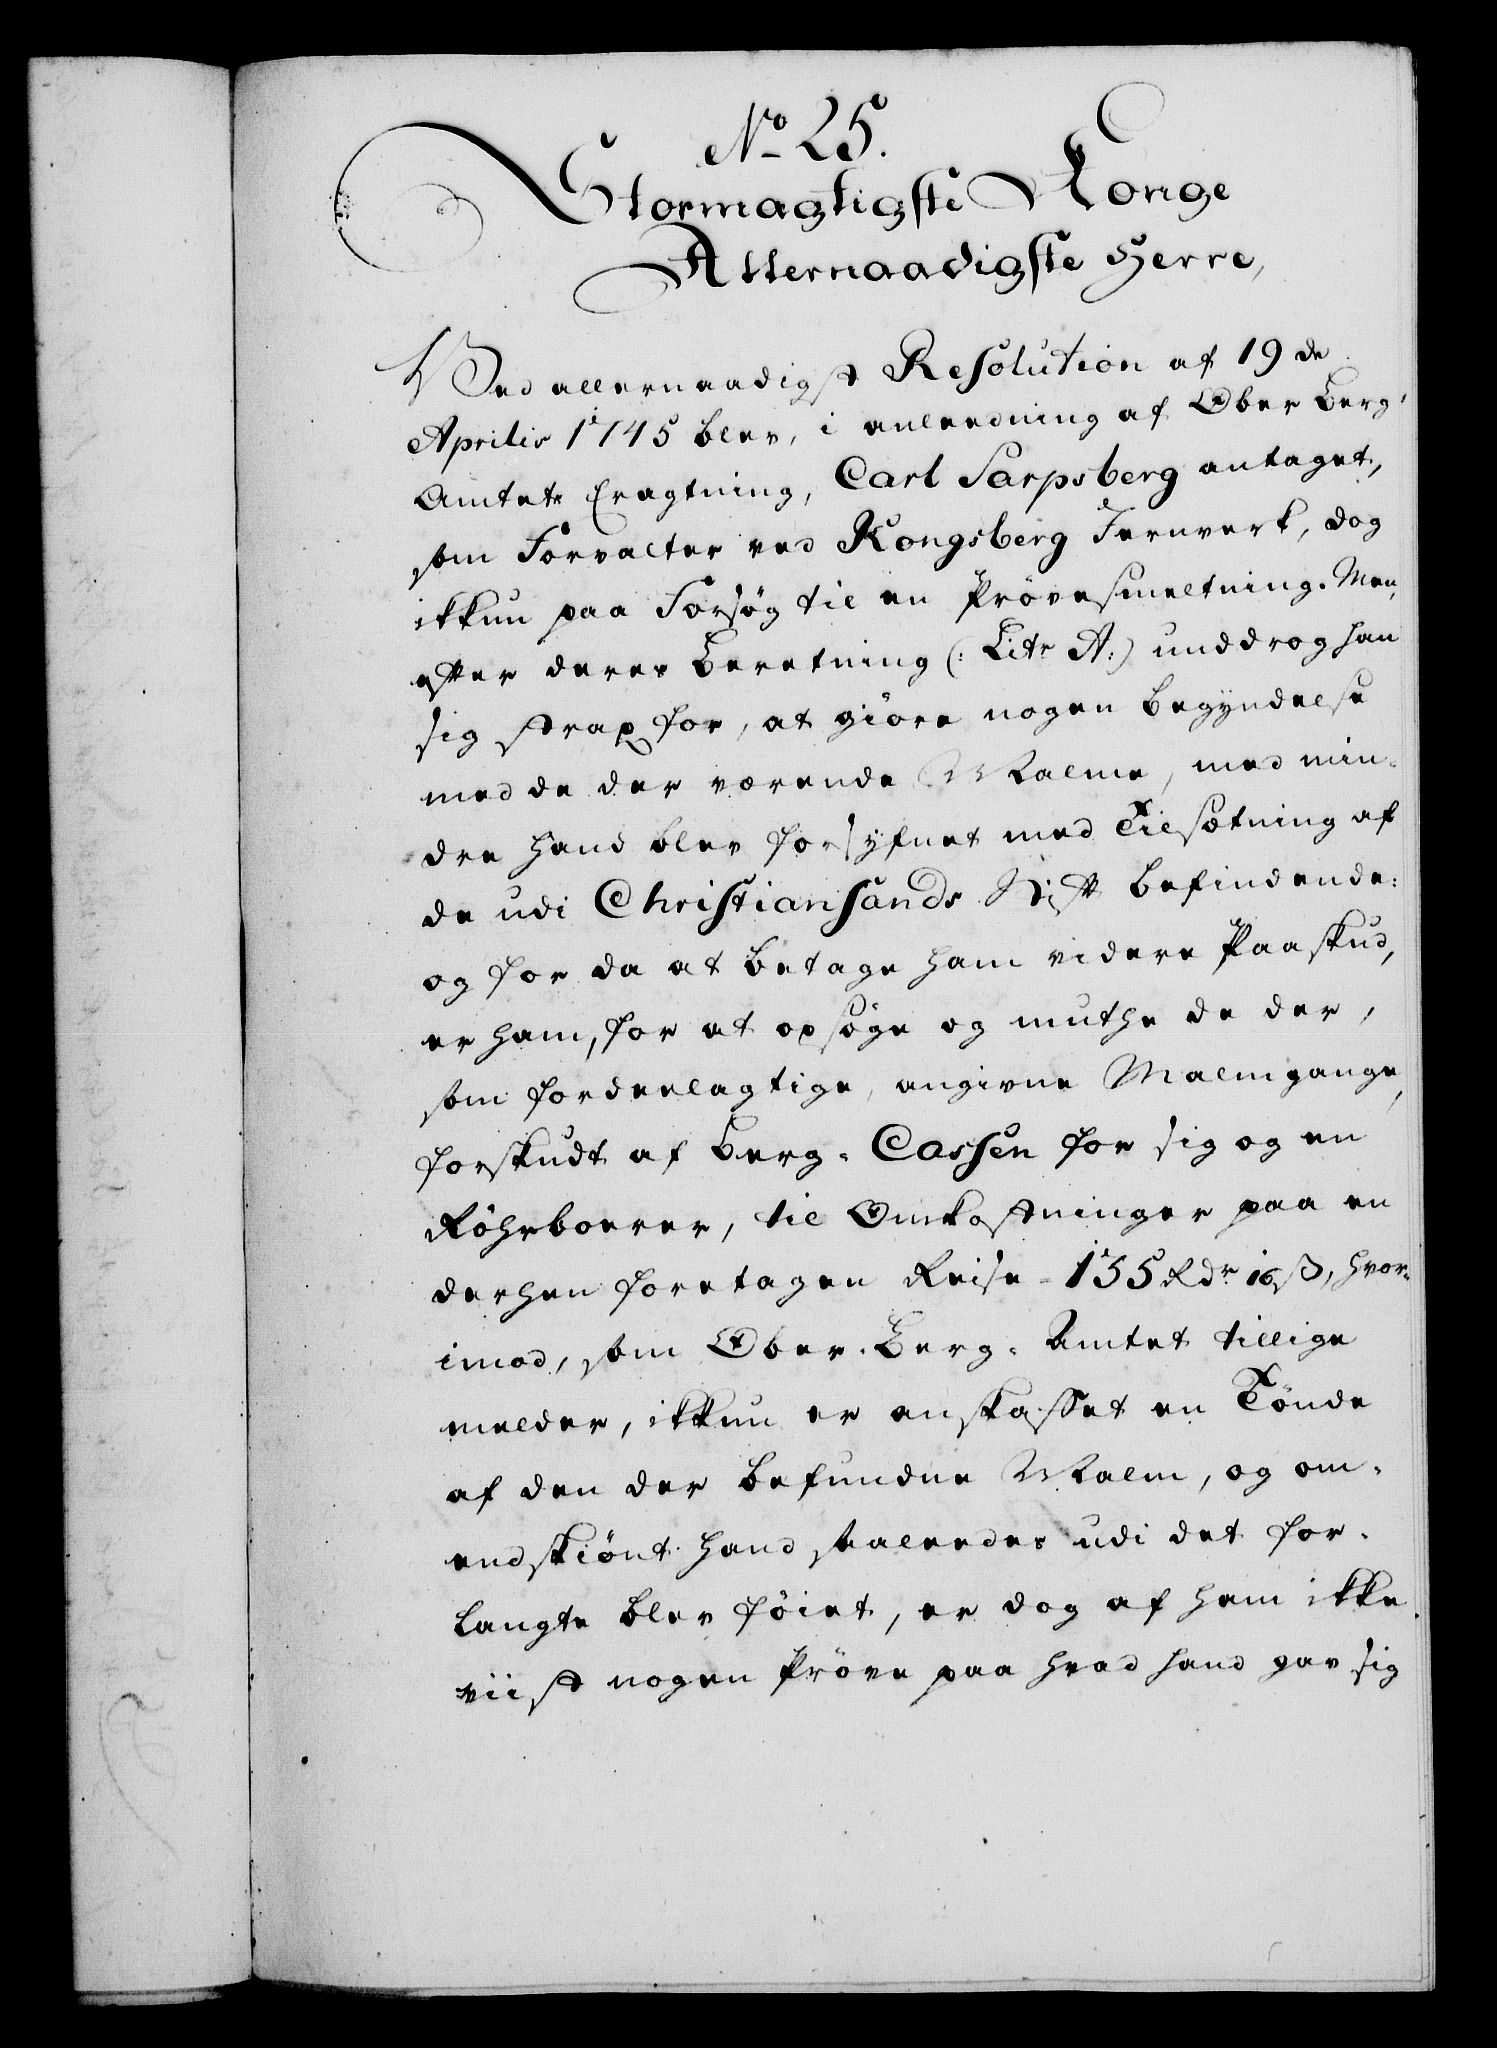 No 25.
Stormagtigste Konge
Allernaadigste Herre,
Ved allernaadigst Resolution af 19de
Aprilis 1745 blev, i anleedning af Ober Berg-
Amtets Eragtning, Carl Sarpsberg antaget,
som Forvalter ved Kongsberg Jernverk, dog
ikkun paa Forsøg til en Prövesmeltning. Men,
efter deres Beretning (: Litr A:) unddrog han
sig strax for, at giöre nogen begyndelse
med de der værende Malme, med min-
dre hand blev forsÿfnet med Tilsætning af
de udi Christiansands Stift befindende:
og for da at betage ham videre Paaskud,
er ham, for at opsöge og muthe de der,
som fordeelagtige, angivne Malmgange,
forskudt af Berg-Cassen for sig og en
Röhrboerer, til Omkostninger paa en
derhen foretagen Reise 135 Rdr 16 ß, hvor-
imod, som Ober-Berg-Amtet tillige
melder, ikkun er anskaffet en Tönde
af den der befundne Malm, og om-
endskiönt hand saaleedes udi det for-
langte blev föiet, er dog af ham ikke
viist nogen Pröve paa hvad hand gav sig